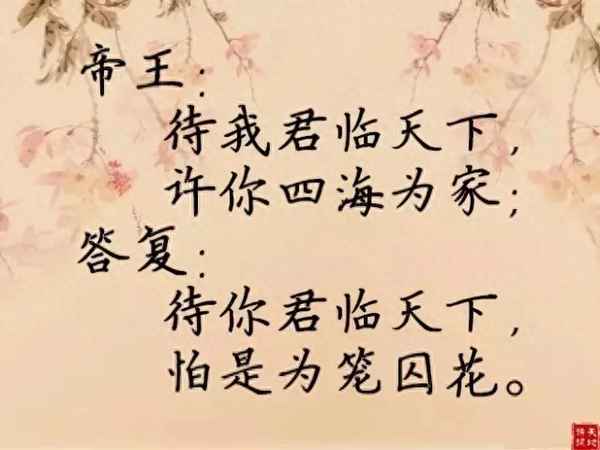 帝王：
待我君临天下，
许你四海为家；
答复：
待你君临天下，
怕是为笼囚花。